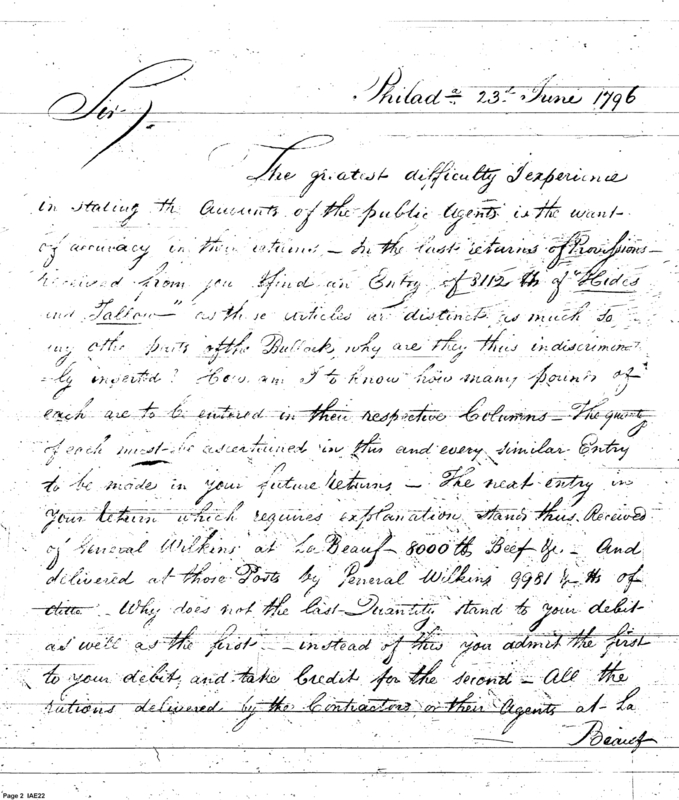 Philad.a 23d. June 1796
Sir,
The greatest difficulty I experience
in stating the Accounts of the public Agents is the want
of accuracy in their returns. – In the last returns of Provisions –
received from you I find an Entry of 3112 lb of "Hides
and Tallow" as these articles are distinct as much so
any other parts of the Bullock, why are they thus indiscriminate
ly inserted? How am I to know how many pounds of
each are to be entered in their respective Columns – The quantity
of each must be ascertained in this and every similar Entry
to be made in your future Returns – The next entry in
your Return which requires explanation stands thus. Received
of General Wilkins at La Beauf – 8000 lb Beef &c. – And
delivered at those Posts by General Wilkins 9981 ½ lbs of
ditto. Why does not the last Quantity stand to your debit
as well as the first – instead of this you admit the first
to your debit, and take Credit for the second – All the
rations delivered by the Contractors or their Agents at La
Beauf
Page 2 IAE22